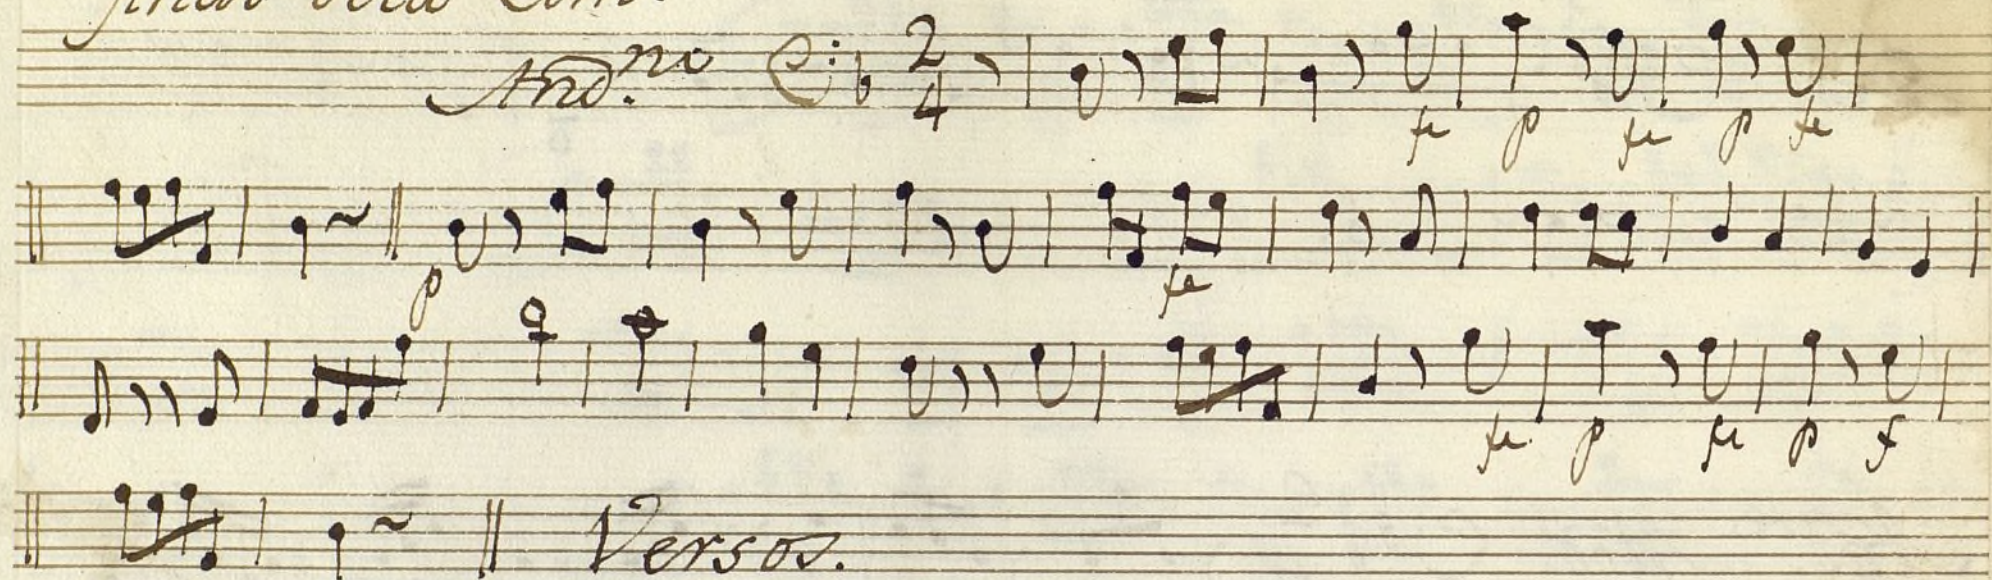 And.no 2/4
fe p fe p fe
p fe
fe. p fe p f
Versos.